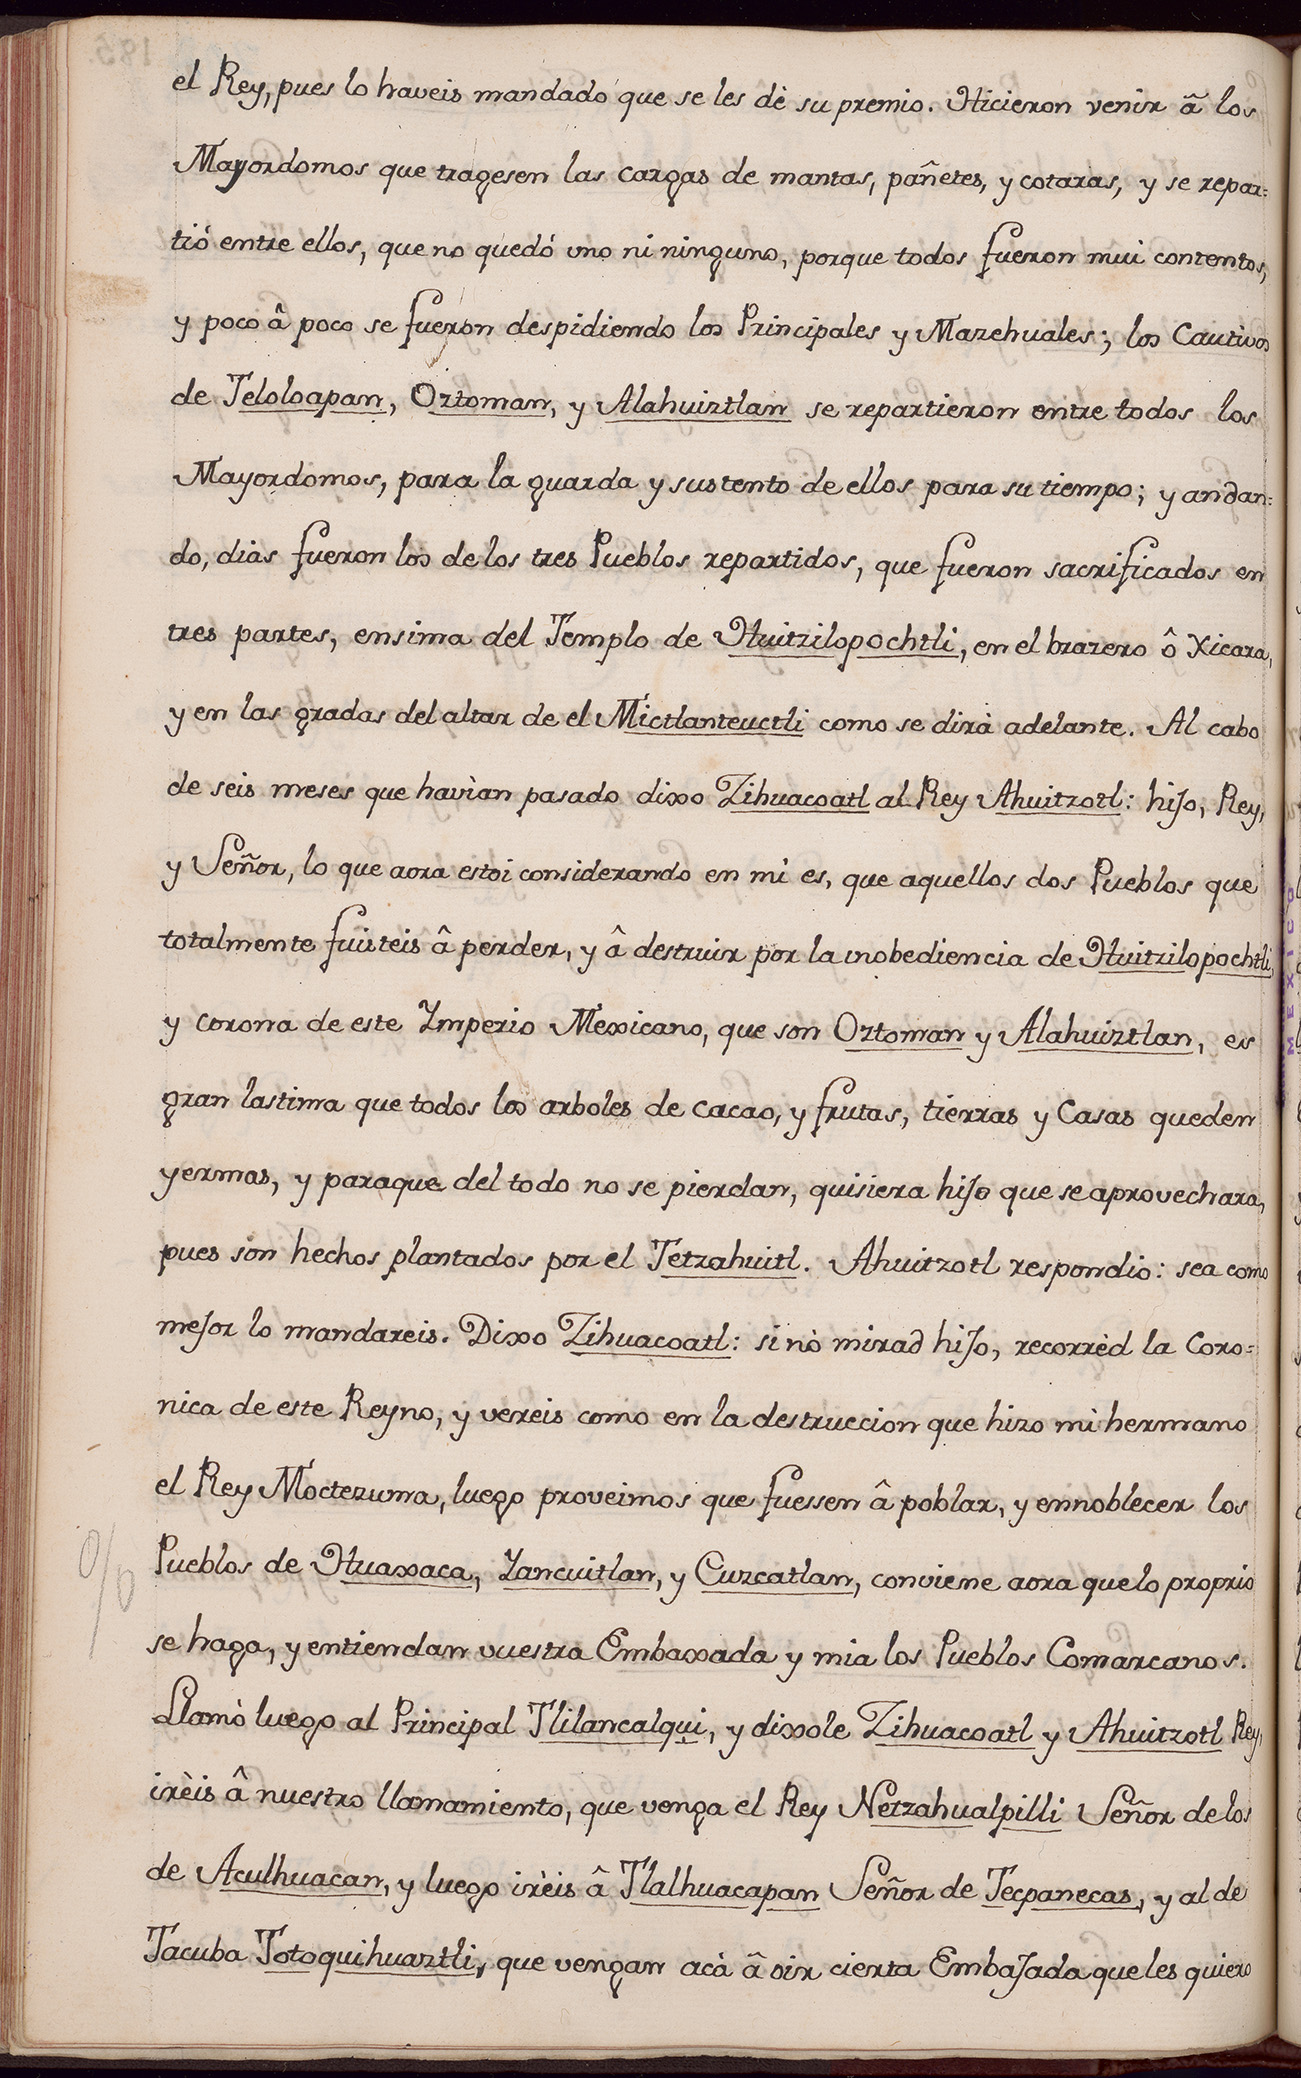 el Rey, pues lo haveis mandado que se les dè su premio. Hicieron venir â los
Mayordomos que tragesen las cargas de mantas, pañetes, y cotaras, y se repar=
tiò entre ellos, que no quedò uno ni ninguno, porque todos fueron mui contentos,
y poco â poco se fueron despidiendo los Principales y Mazehuales; los Cautivos
de Teloloapan, Oztoman, y Alahuiztlan se repartieron entre todos los
Mayordomos, para la guarda y sustento de ellos para su tiempo; y andan=
do, dias fueron los de los tres Pueblos repartidos, que fueron sacrificados en
tres partes, ensima del Templo de Huitzilopochtli, en el brazero ô Xicara,
y en las gradas del altar de el Mictlanteuctli como se dirà adelante. Al cabo
de seis meses que havìan pasado dixo Zihuacoatl al Rey Ahuitzotl: hijo, Rey,
y Señor, lo que aora estoi considerando en mi es, que aquellos dos Pueblos que
totalmente fuisteis â perder, y â destruir por la inobediencia de Huitzilopochtli,
y corona de este Ymperio Mexicano, que son Oztoman y Alahuiztlan, es
gran lastima que todos los arboles de cacao, y frutas, tierras y Casas queden
yermas, y paraque del todo no se pierdan, quisiera hijo que se aprovechara,
pues son hechos plantados por el Tetzahuitl. Ahuitzotl respondio: sea como
mejor lo mandareis. Dixo Zihuacoatl: si nò mirad hijo, recorrèd la Coro=
nica de este Reyno, y vereis como en la destruccion que hizo mi hermano
el Rey Moctezuma, luego proveimos que fuessen â poblar, y ennoblecer los
Pueblos de Huaxaca, Yancuitlan, y Cuzcatlan, conviene aora que lo proprio
se haga, y entiendan vuestra Embaxada y mia los Pueblos Comarcanos.
Llamò luego al Principal Tlilancalqui, y dixole Zihuacoatl y Ahuitzotl Rey,
irèis â nuestro llamamiento, que venga el Rey Netzahualpilli Señor de los
de Aculhuacan, y luego irèis â Tlalhuacapan Señor de Tecpanecas, y al de
Tacuba Totoquihuaztli, que vengan acà â oir cierta Embajada que les quiero
MEXICO